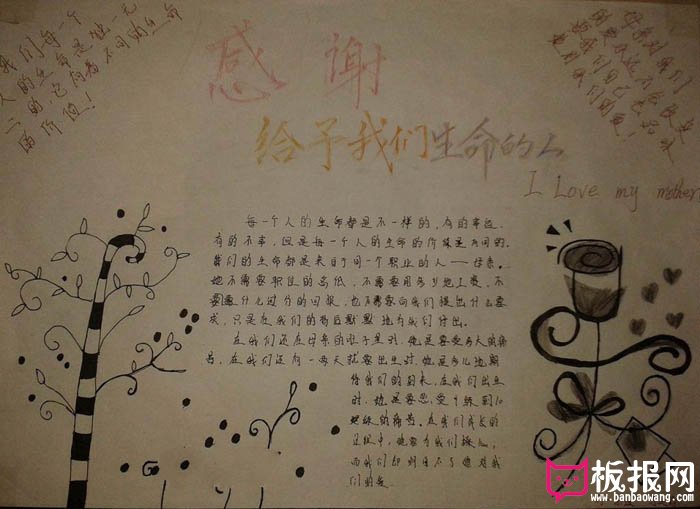 我们每一个
人的生命是独一无
二的,它有着不同的生命
的价值!
感谢
给予我们生命的人
I Love my mother
每一个人的生命都是不一样的,有的幸运,
有的不幸,但是每一个人的生命的价值是不同的.
我们的生命都是来自于同一个职业的人——母亲.
她不需要职位的高低,不需要用多少地工资,不
需要什么过分的回报,也不需要向我们提出什么要
求,只是在我们的背后默默地为我们付出.
在我们还在母亲的肚子里时,她是要受多大的痛
苦,在我们还有一两天就要出生时,她是多么地期
待我们的到来,在我们出生
时,她是要忍受
的痛苦.在我们成长的
过程中,她要为我们操心,
而我们却
们的爱.
板报网
www.banbaowang.com